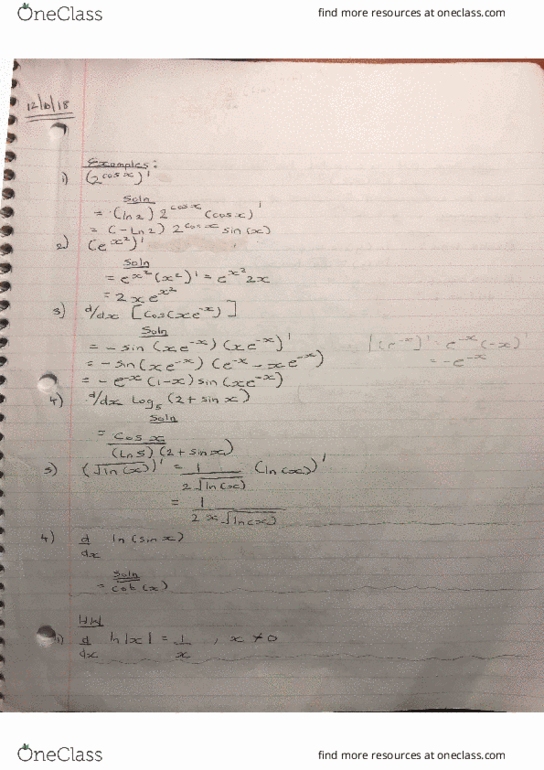 OneClass
find more resources at oneclass.com
12/10/18
Examples:
1) (2^cos x)'
Soln
= (ln 2) 2^cos x (cos x)'
= (-Ln 2) 2^cos x sin(x)
2) (e^x²)'
Soln
= e^x² (x²)' = e^x² 2x
= 2x e^x²
3) d/dx [cos(xe^-x)]
Soln
= - sin (xe^-x) (xe^-x)'
(e^-x)' = e^-x (-x)'
= - sin(xe^-x) (e^-x - xe^-x)
= -e^-x
= - e^-x (1-x) sin(xe^-x)
4) d/dx Log₅ (2 + sin x)
Soln
= cos x / (Ln 5) (2 + sin x)
5) (√ln(x))' = 1 / 2√ln(x) (ln(x))'
= 1 / 2x√ln(x)
4) d/dx ln(sin x)
Soln
= cot(x)
HW
1) d/dx ln|x| = 1/x , x ≠ 0
OneClass
find more resources at oneclass.com